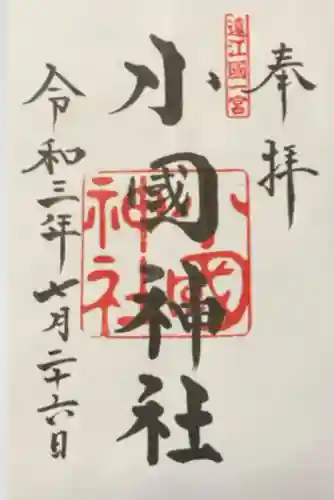 奉拝
遠江國一宮
小國神社
小國神社
令和三年七月二十六日